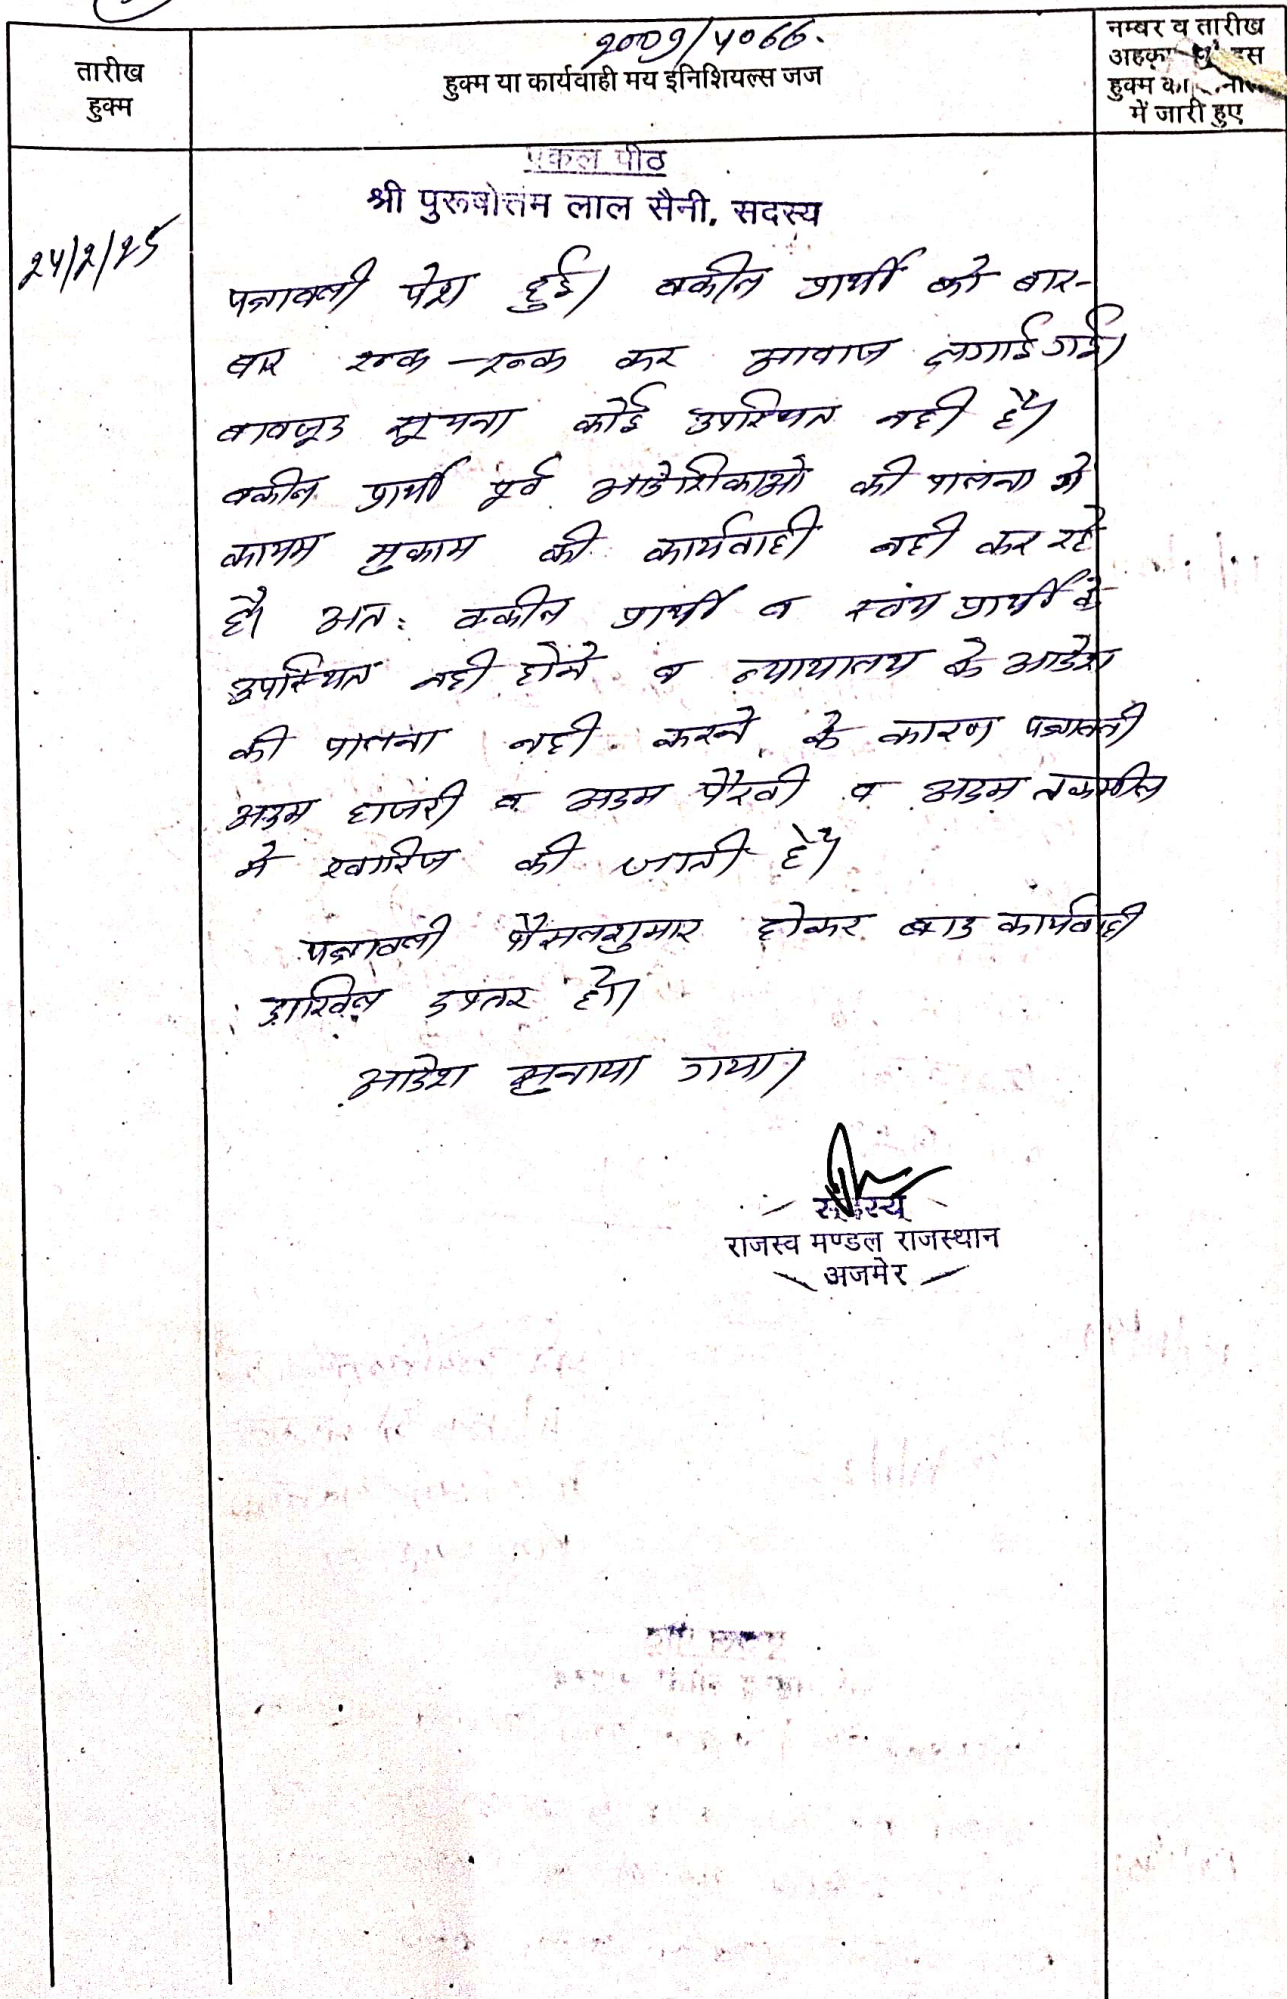 2009/4066.
तारीख
हुक्म
हुक्म या कार्यवाही मय इनिशियल्स जज
नम्बर व तारीख
हुक्म
में जारी हुए
एकल पीठ
श्री पुरूषोत्तम लाल सैनी, सदस्य
24/2/25
पत्रावली पेश हुई। वकील प्रार्थी को बार-
बार रूक-रूक कर आवाज लगाई गई।
बावजूद सूचना कोई उपस्थित नही है।
वकील प्रार्थी पूर्व आदेशिकाओ की पालना मे
कायम मुकाम की कार्यवाही नही कर रहे
है। अतः वकील प्रार्थी व स्वंय प्रार्थी के
उपस्थित नही होने व न्यायालय के आदेश
की पालना नही करने के कारण पत्रावली
अदम हाजरी व अदम पैरवी व अदम तकमील
मे खारिज की जाती है।
पत्रावली फैसलशुमार होकर बाद कार्यवाही
दाखिल दफ्तर हो।
आदेश सुनाया गया।
सदस्य
राजस्व मण्डल राजस्थान
अजमेर